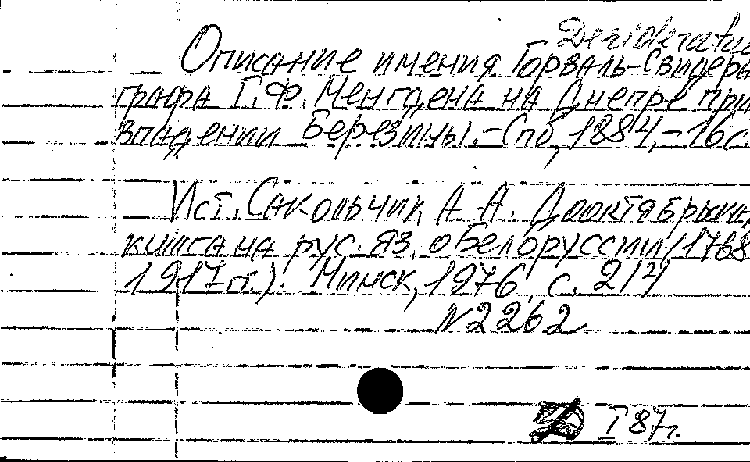 Desiderata
Описание имения Горваль-Свидеры
графа Г.Ф. Менгдена на Днепре при
впадении Березины.-Спб, 1884,-16с.
Ист. Сакольчик, А.А. Дооктябрьск.
книга на рус. яз. о Белоруссии (1768
1917гг.). Минск, 1976, с. 214
№2262
I 87г.